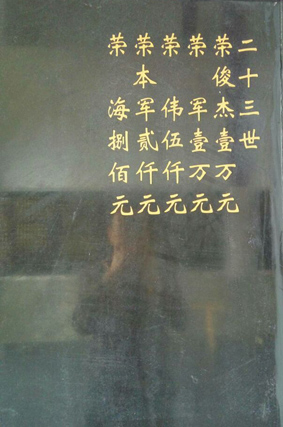 二十三世
荣俊杰壹万元
荣军壹万元
荣伟伍仟元
荣本军贰仟元
荣海捌佰元